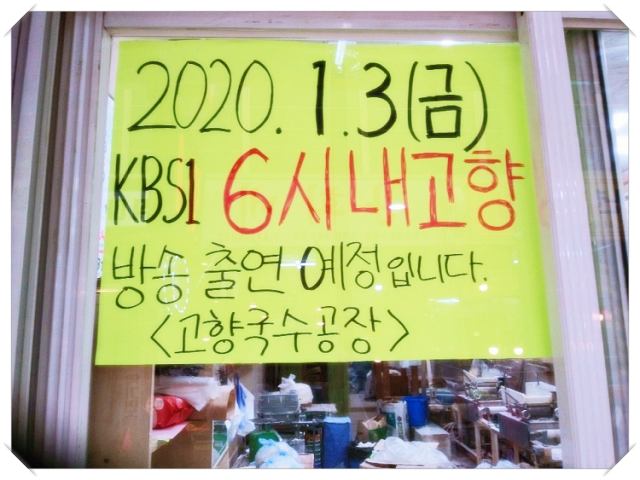 2020. 1. 3(금)
KBS1 6시내고향
방송 출연 예정입니다.
<고향국수공장>